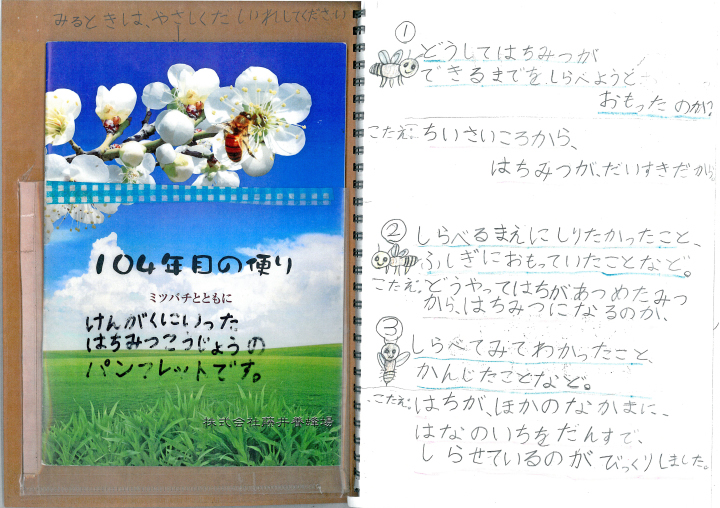 みるときは、やさしくた いれしてください
104年目の便り
ミツバチとともに
けんがくにいった
はちみつこうじょうの
パンフレットです。
株式会社藤井養蜂場
①
どうしてはちみつが
できるまでを、しらべようと
おもったのか?
こたえ:ちいさいころから、
はちみつが、だいすきだから
②
しらべるまえにしりたかったこと、
ふしぎにおもっていたことなど。
こたえ:どうやってはちがあつめたみつ
から、はちみつになるのか、
③
しらべてみてわかったこと、
かんじたことなど。
こたえ:はちが、ほかのなかまに、
はなのいちをだんすで、
しらせているのがびっくりしました。